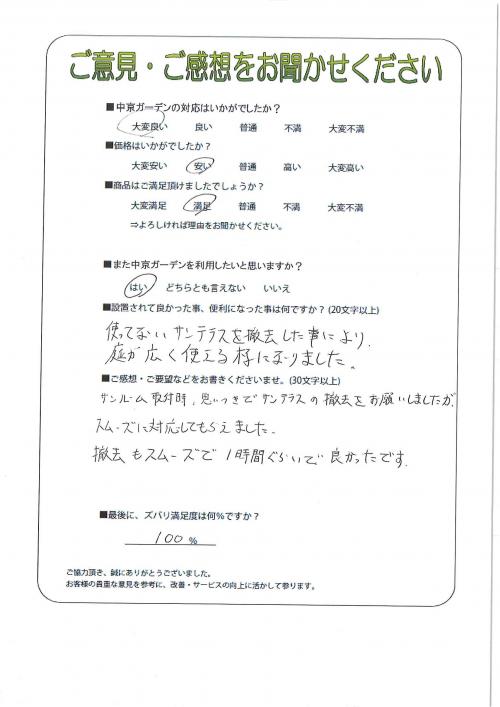 ご意見・ご感想をお聞かせください
■中京ガーデンの対応はいかがでしたか？
大変良い 良い 普通 不満 大変不満
■価格はいかがでしたか？
大変安い 安い 普通 高い 大変高い
■商品はご満足頂けましたでしょうか？
大変満足 満足 普通 不満 大変不満
⇒よろしければ理由をお聞かせください。
■また中京ガーデンを利用したいと思いますか？
はい どちらとも言えない いいえ
■設置されて良かった事、便利になった事は何ですか？(20文字以上)
使ってないサンテラスを撤去した事により、
庭が広く使える様になりました。
■ご感想・ご要望などをお書きくださいませ。(30文字以上)
サンルーム取付時、思いつきでサンテラスの撤去をお願いしましたが、
スムーズに対応してもらえました。
撤去もスムーズで1時間ぐらいで良かったです。
■最後に、ズバリ満足度は何%ですか？
100 %
ご協力頂き、誠にありがとうございました。
お客様の貴重な意見を参考に、改善・サービスの向上に活かして参ります。